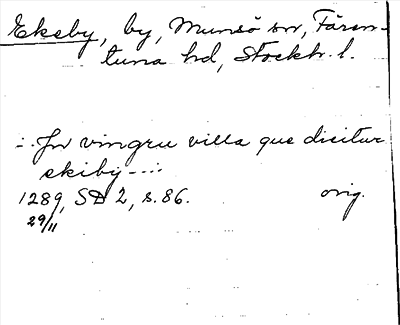 Ekeby, by, Munsö sn, Fären-
tuna hd, Stockh. l.
-:- Jn vingru villa que dicitur
ekiby -:-
1289, SD 2, s. 86. orig.
29/11